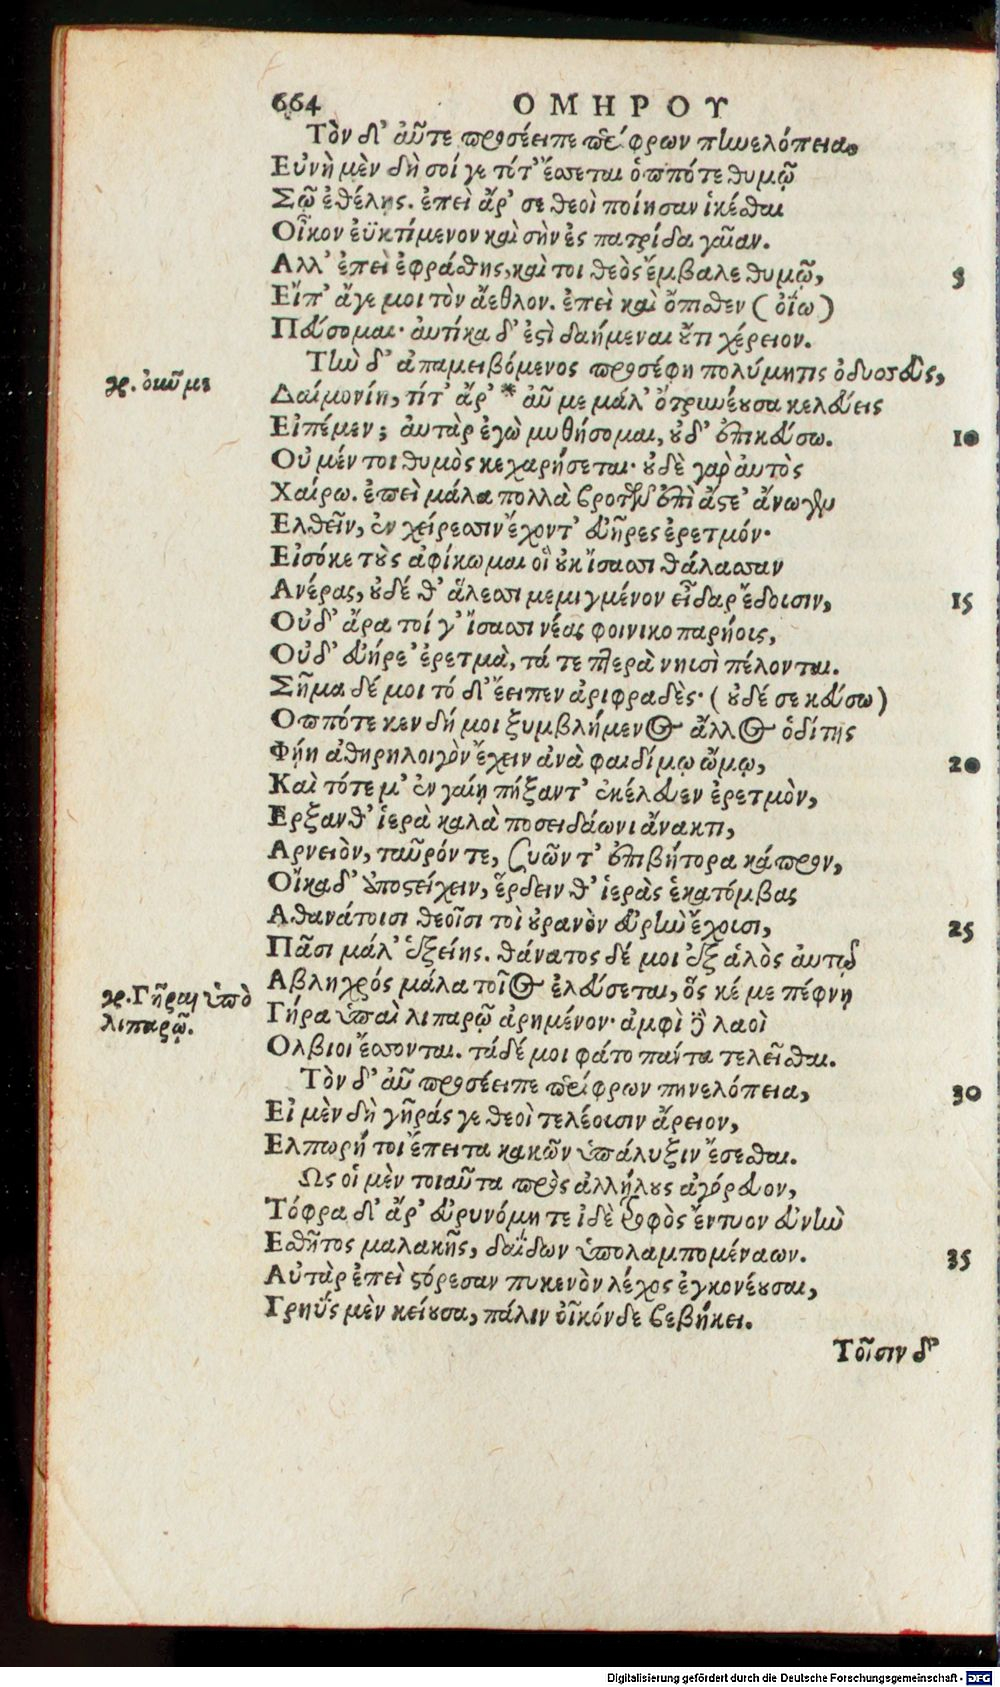 664 ΟΜΗΡΟΥ
Τὸν δ' αὖτε προσέειπε περίφρων πηνελόπεια.
Εὐνὴ μὲν δὴ σοί γε τότ' ἔσσεται ὁππότε θυμῷ
Σῷ ἐθέλῃς. ἐπεὶ ἄρ' σε θεοὶ ποίησαν ἱκέσθαι
Οἶκον ἐϋκτίμενον καὶ σὴν ἐς πατρίδα γαῖαν.
Αλλ' ἐπεὶ ἐφράσθης, καί τοι θεὸς ἔμβαλε θυμῷ, 5
Εἴπ' ἄγε μοι τὸν ἄεθλον. ἐπεὶ καὶ ὄπισθεν (ὀΐω)
Πεύσομαι· αὐτίκα δ' ἐστὶ δαήμεναι οὔτι χέρειον.
Τὴν δ' ἀπαμειβόμενος προσέφη πολύμητις ὀδυσσεύς,
γρ. ὀκνῦ με
Δαίμονίη, τίτ' ἄρ' * αὖ με μάλ' ὀτρυνέουσα κελεύεις
Εἰπέμεν; αὐτὰρ ἐγὼ μυθήσομαι, οὐδ' ἐπικεύσω. 10
Οὐ μέν τοι θυμὸς κεχαρήσεται· οὐδὲ γὰρ αὐτὸς
Χαίρω. ἐπεὶ μάλα πολλὰ βροτῶν ἐπὶ ἄστε' ἄνωγεν
Ελθεῖν, ἐν χείρεσσιν ἔχοντ' εὐῆρες ἐρετμόν·
Εἰσόκε τοὺς ἀφίκωμαι οἳ οὐκ ἴσασι θάλασσαν
Ανέρας, οὐδέ θ' ἅλεσσι μεμιγμένον εἶδαρ ἔδουσιν, 15
Οὐδ' ἄρα τοί γ' ἴσασι νέας φοινικοπαρῄους,
Οὐδ' εὐήρε' ἐρετμὰ, τά τε πτερὰ νηυσὶ πέλονται.
Σῆμα δέ μοι τό δ' ἔειπεν ἀριφραδὲς· (οὐδέ σε κεύσω)
Οππότε κεν δή μοι ξυμβλήμενος ἄλλος ὁδίτης
Φήῃ ἀθηρηλοιγὸν ἔχειν ἀνὰ φαιδίμῳ ὤμῳ, 20
Καὶ τότε μ' ἐν γαίῃ πήξαντ' ἐκέλευεν ἐρετμὸν,
Ερξανθ' ἱερὰ καλὰ ποσειδάωνι ἄνακτι,
Αρνειὸν, ταῦρόν τε, συῶν τ' ἐπιβήτορα κάπρον,
Οἴκαδ' ἀποστείχειν, ἕρδειν θ' ἱερὰς ἑκατόμβας
Αθανάτοισι θεοῖσι τοὶ οὐρανὸν εὐρὺν ἔχουσι, 25
Πᾶσι μάλ' ἑξείης. θάνατος δέ μοι ἐξ ἁλὸς αὐτῷ
γρ. Γῆραι ὑπὸ λιπαρῷ.
Αβληχρός μάλα τοῖος ἐλεύσεται, ὅς κέ με πέφνῃ
Γήρα ὑπαὶ λιπαρῷ ἀρημένον· ἀμφὶ δὲ λαοὶ
Ολβιοι ἔσσονται. τάδέ μοι φάτο πάντα τελεῖσθαι.
Τὸν δ' αὖ προσέειπε περίφρων πηνελόπεια, 30
Εἰ μὲν δὴ γῆράς γε θεοὶ τελέουσιν ἄρειον,
Ελπωρή τοι ἔπειτα κακῶν ὑπάλυξιν ἔσεσθαι.
Ως οἱ μὲν τοιαῦτα πρὸς ἀλλήλους ἀγόρευον,
Τόφρα δ' ἄρ' εὐρυνόμη τε ἰδὲ τροφὸς ἔντυον εὐνὴν
Εσθῆτος μαλακῆς, δαΐδων ὑπολαμπομενάων. 35
Αὐτὰρ ἐπεὶ στόρεσαν πυκενὸν λέχος ἐγκονέουσαι,
Γρηῢς μὲν κείουσα, πάλιν οἶκόνδε βεβήκει.
Τοῖσιν δ'
Digitalisierung gefördert durch die Deutsche Forschungsgemeinschaft - DFG